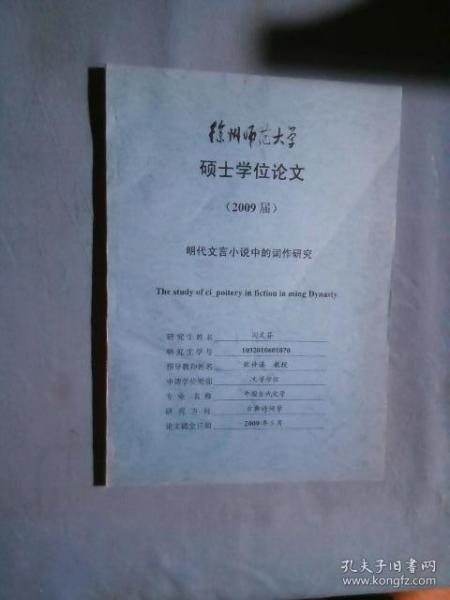 徐州师范大学
硕士学位论文
（2009 届）
明代文言小说中的词作研究
The study of ci_poitery in fiction in ming Dynasty
研究生姓名
研究生学号 1032010601070
指导教师姓名 教授
申请学位类别 文学学位
专业名称 中国古代文学
研究方向 古典诗词学
论文提交日期 2009年5月
孔夫子旧书网
www.kongfz.com